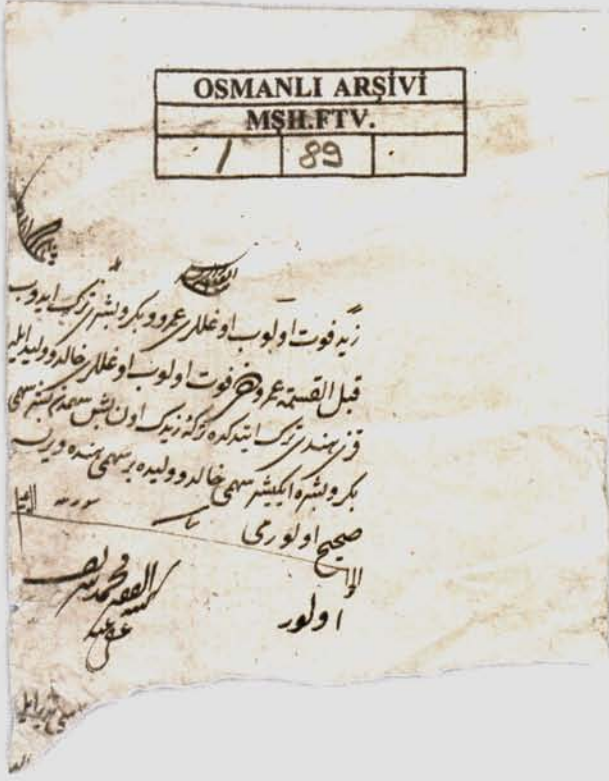 OSMANLI ARŞİVİ
MŞH.FTV.
1 89
زید فوت اولوب اوغللری عمرو و بکر و بشری ترک ایدوب
قبل القسمه عمرو دخی فوت اولوب اوغللری خالد و ولید ایله
قزی هندی ترک ایتدکده ترکه زیدک اون بش سهمدن بشر سهمی
بکر و بشره ایکیشر سهمی خالد و ولیده بر سهمی هنده ویرلسه
صحیح اولورمی
اولور
کتبه الفقیر محمد شریف
عفی عنه